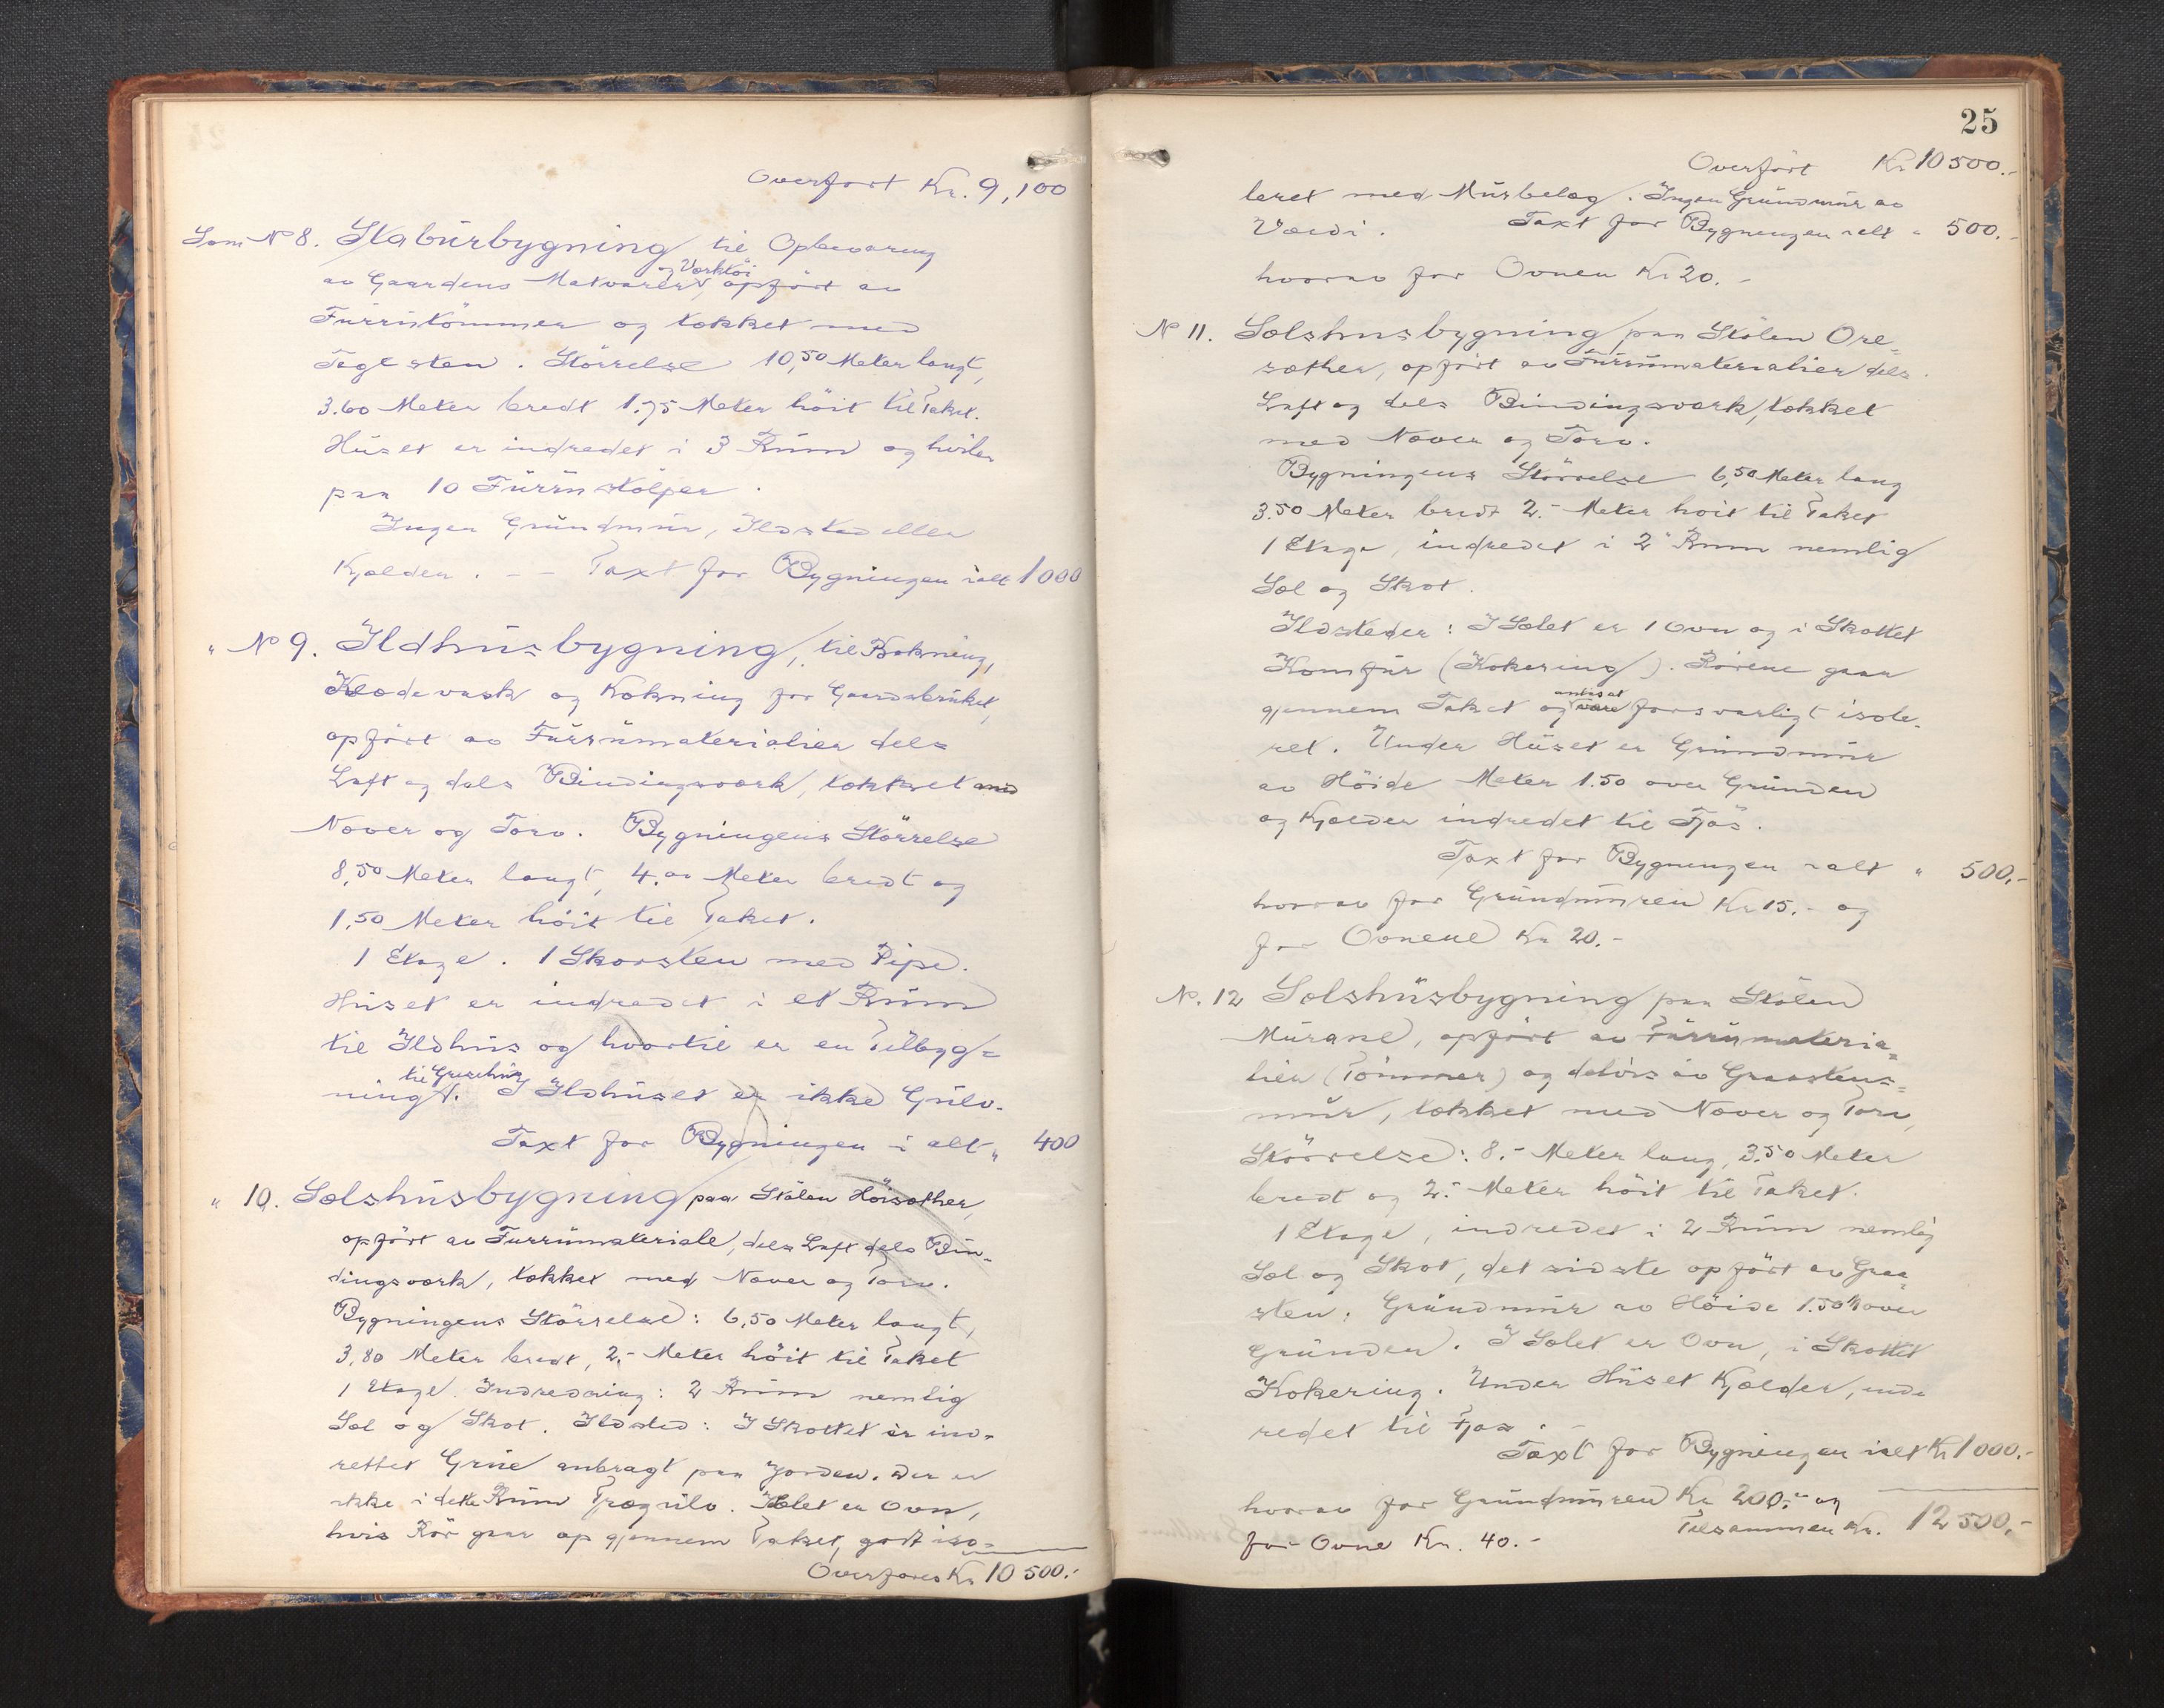 Overført Kr. 9,100
Som No 8. Staburbygning til Opbevaring
og Verktöi
av Gaardens Matvarer, opfört av
Furrutömmer og tækket med
Teglsten. Störrelse 10,50 Meter langt,
3.60 Meter bredt 1.75 Meter höit til Taket.
Huset er indredet i 3 Rum og hviler
paa 10 Furrustolper.
Ingen Grundmur, Ildsted eller
Kjælder. - - Taxt for Bygningen ialt 1000
" No 9. Ildhusbygning, til Bakning,
Klædevask og Kokning for Gaardsbruket,
opfört av Furrumaterialier dels
Laft og dels Bindingsværk, tækket med
Næver og Torv. Bygningens Störrelse
8,50 Meter langt, 4,00 Meter bredt og
1,50 Meter höit til Taket.
1 Etage. 1 Skorsten med Pipe.
Huset er indredet i et Rum
til Ildhus og hvortil er en Tilbyg=
ning. I Ildhuset er ikke Gulv.
Taxt for Bygningen i alt " 400
" 10. Sælshusbygning paa Stölen Höisæther,
opfört av Furrumateriale, dels Laft dels Bin=
dingsværk, tækket med Næver og Torv.
Bygningens Störrelse: 6,50 Meter langt,
3,80 Meter bredt, 2.- Meter höit til Taket
1 Etage. Indredning: 2 Rum nemlig
Sæl og Skot. Ildsted: I Skottet er ind=
rettet Grue anbragt paa Jorden. Der er
ikke i dette Rum Trægulv. I Sælet er Ovn,
hvis Rör gaar op gjennem Taket, godt iso=
Overföres Kr 10 500.-
25
Overfört Kr 10 500.-
leret med Murbelæg. Ingen Grundmur av
Værdi. Taxt for Bygningen ialt " 500.-
hvorav for Ovnen Kr 20.-
No 11. Sælshusbygning paa Stölen Ore=
sæther, opfört av Furrumaterialier dels
Laft og dels Bindingsværk, tækket
med Næver og Torv.
Bygningens Störrelse 6,50 Meter lang
3.50 Meter bredt 2.- Meter höit til Taket
1 Etage, indredet i 2 Rum nemlig
Sæl og Skot.
Ildsteder: I Sælet er 1 Ovn og i Skottet
Komfur (Kokering). Rörene gaar
antas at
gjennem Taket og være forsvarligt isole-
ret. Under Huset er Grundmur
av Höide Meter 1.50 over Grunden
og Kjælder indredet til Fjös.
Taxt for Bygningen ialt " 500.-
hvorav for Grundmuren Kr 15.- og
for Ovnene Kr 20.-
No. 12 Sælshusbygning paa Stölen
Murane, opfört av Furrumateria=
lier (Tömmer) og delvis av Graastens=
mur, tækket med Næver og Torv,
Störrelse: 8.- Meter lang, 3.50 Meter
bredt og 2.- Meter höit til Taket.
1 Etage, indredet i 2 Rum nemlig
Sæl og Skot, det sidste opfört av Graa=
sten. Grundmur av Höide 1.50 M over
Grunden. I Sælet er Ovn, i Skottet
Kokering. Under Huset Kjælder, ind-
redet til Fjös.
Taxt for Bygningen ialt Kr 1 000.-
hvorav for Grundmuren Kr 200.- og
Tilsammen Kr. 12 500,-
for Ovne Kr. 40.-